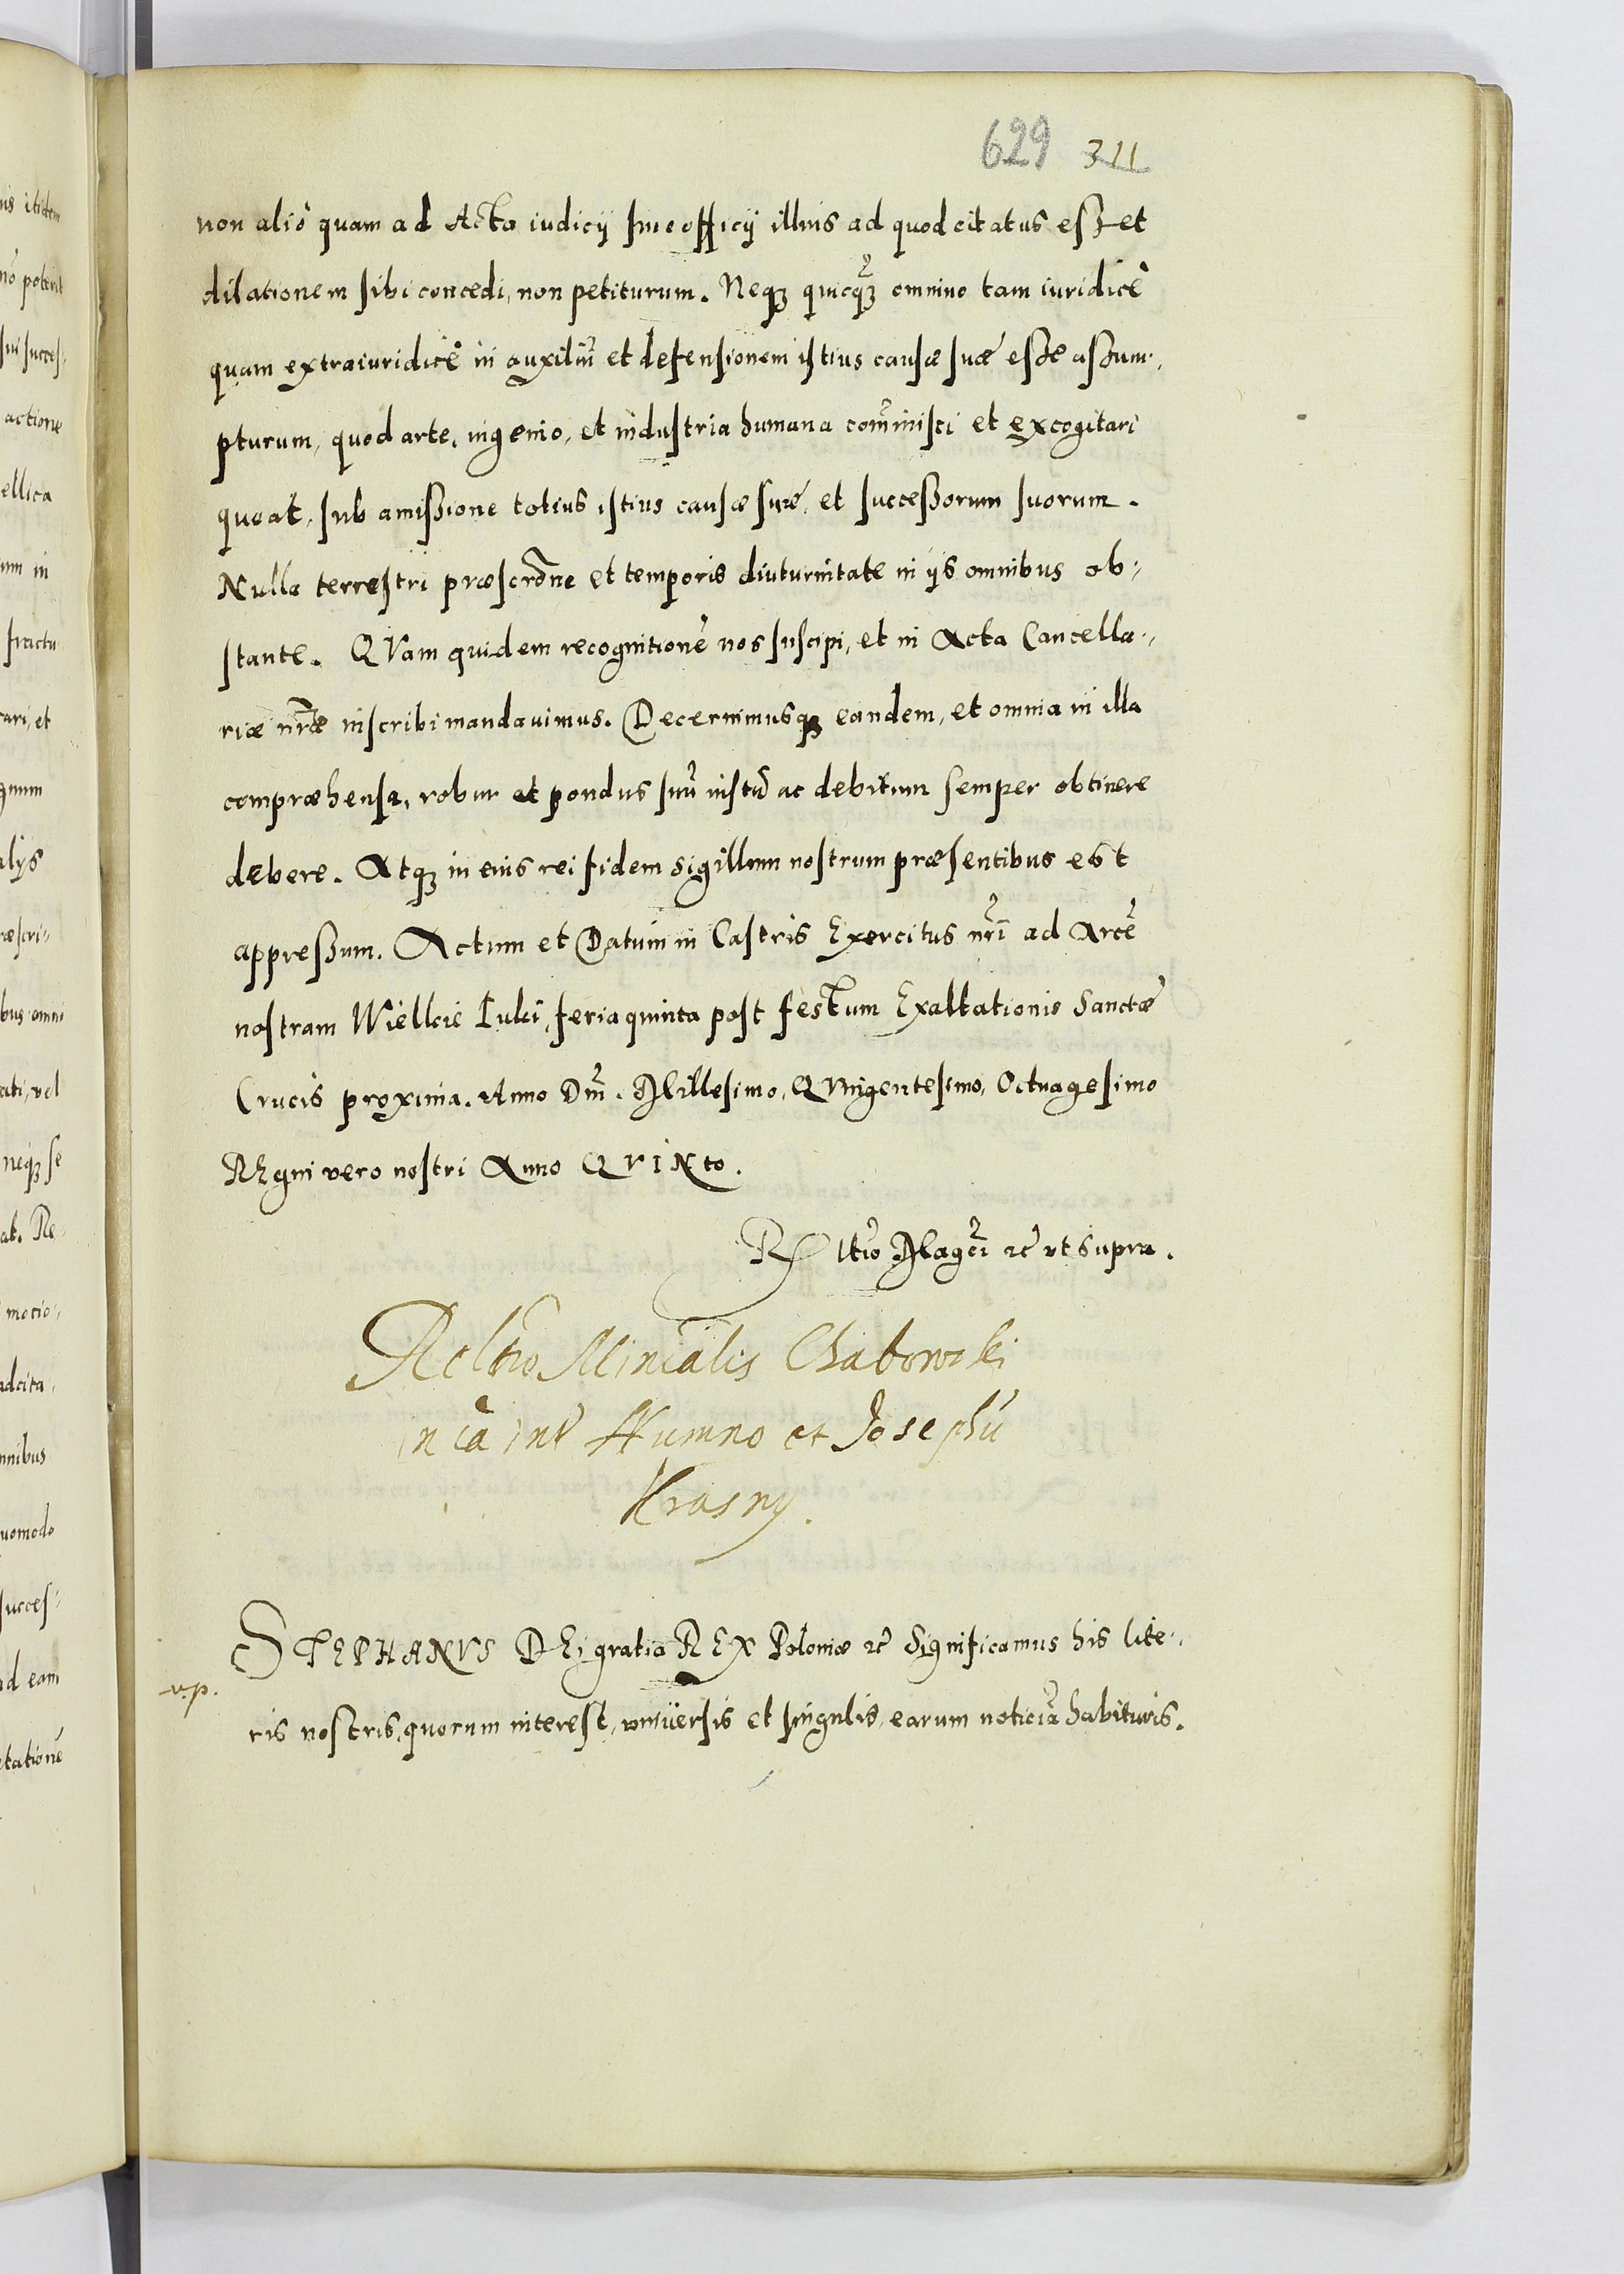 629 311
non alio quam ad Acta iudicij siue officij illius ad quod citatus esset
dilationem sibi concedi, non petiturum. Neqȝ quicqȝ omnino tam iuridicè
quam extraiuridicè in auxiliū et defensionem istius causæ suæ esse assum-
pturum, quod arte, ingenio, et industria humana com̃inisci et excogitari
queat, sub amißione totius istius causæ suæ, et succeßorum suorum.
Nulla terrestri præscrōne et temporis diuturnitate in ijs omnibus ob-
stante. QVam quidem recognitionē nos suscipi, et in Acta Cancella-
riæ nr̃æ inscribi mandauimus. Decernimusqȝ eandem, et omnia in illa
compræhensa, robur et pondus suū iustū ac debitum semper obtinere
debere. Atqȝ in eius rei fidem sigillum nostrum præsentibus est
appreßum. Actum et Datum in Castris Exercitus nr̃i ad Arcē
nostram Wielkie Luki, feria quinta post festum Exaltationis Sanctæ
Crucis proxima. Anno Dn̄i. Millesimo, QVingentesimo, Octuagesimo
REgni vero nostri Anno QVINto.
Rltio Magci rc̄ vt supra.
Reltio Minialis Chabowski
in cā int Humno et Josephū
Krasny.
STEPHANVS DEi gratia REX Poloniæ rc̄ Significamus his lite-
v.p.
ris nostris, quorum interest, vniuersis et singulis, earum noticiā habituris.